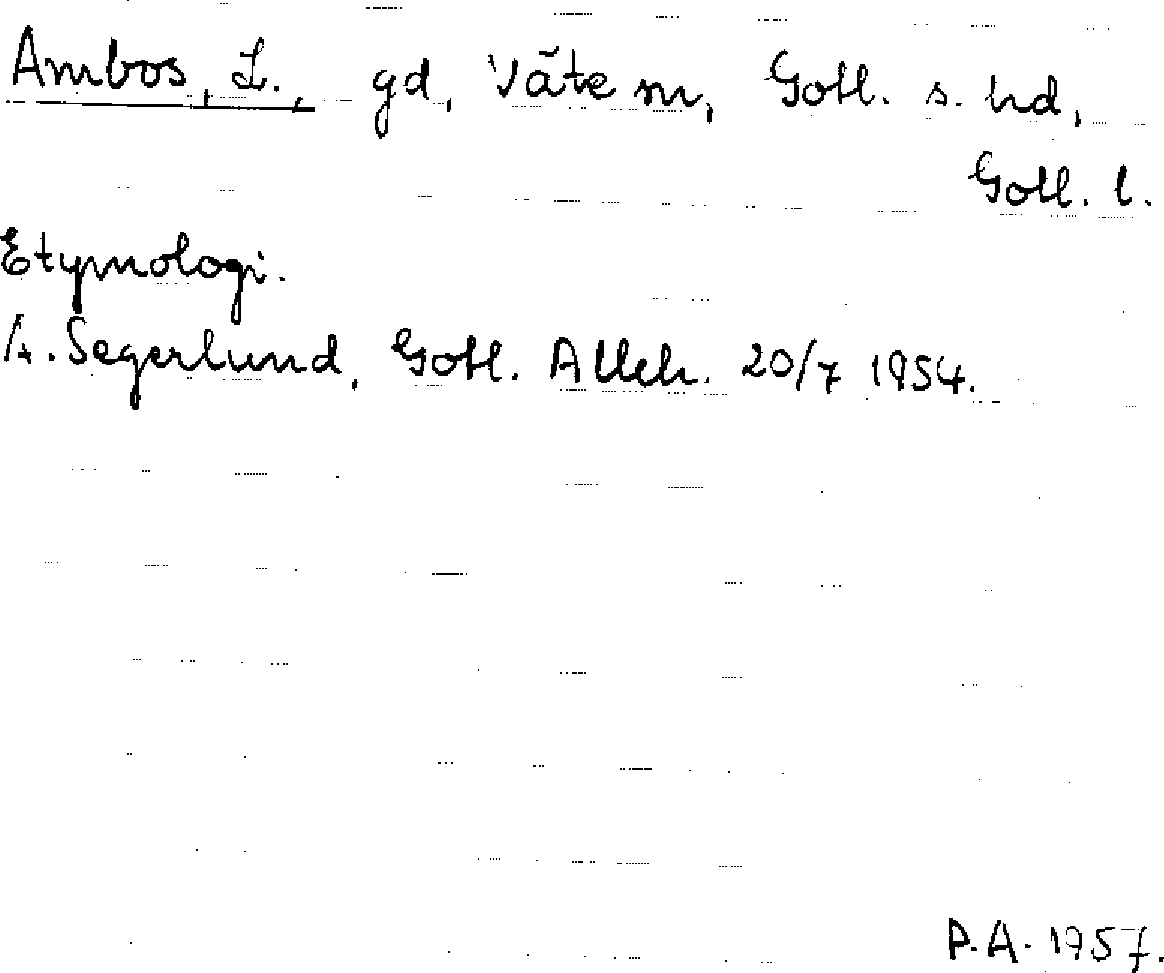 Ambos, L., gd, Väte sn, Gotl. s. hd,
Gotl. l.
Etymologi.
A. Segerlund, Gotl. Alleh. 20/7 1954.
P.A. 1957.